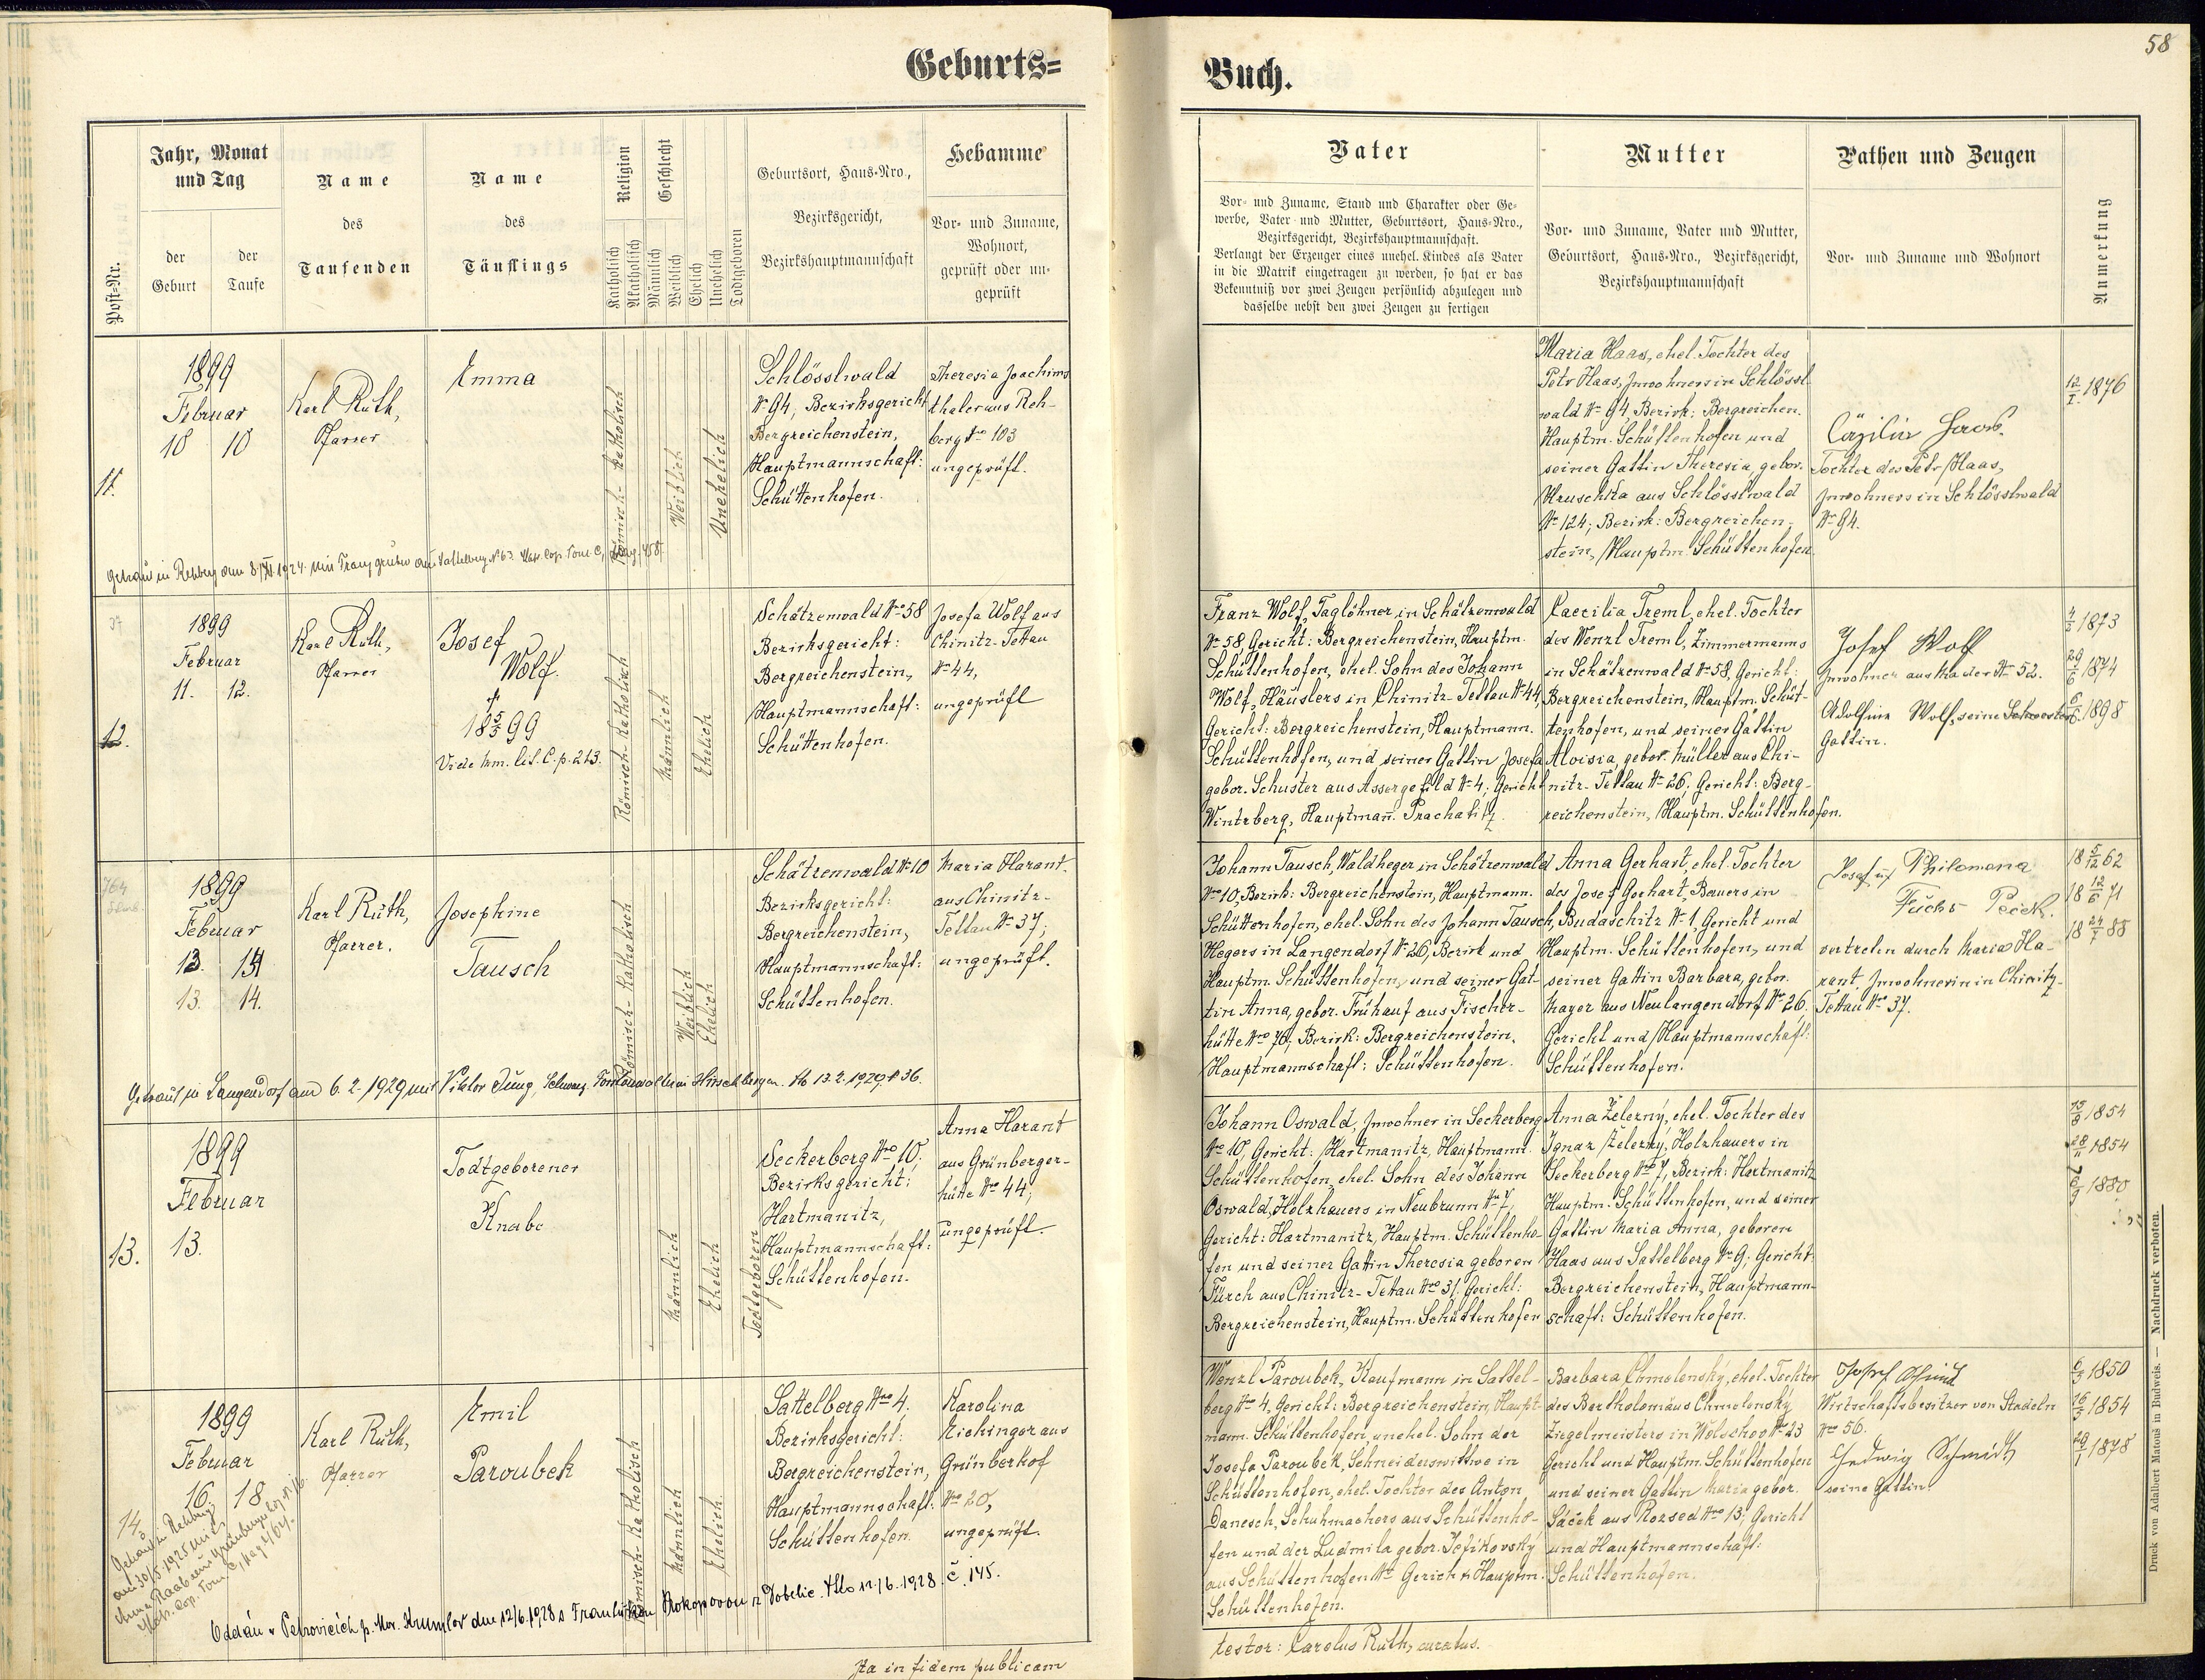 Geburts=
Jahr, Monat
und Tag
der
Geburt
der
Taufe
Name
des
Taufenden
Name
des
Täuflings
Religion
Geschlecht
Katholisch
Akatholisch
Männlich
Weiblich
Ehelich
Unehelich
Todtgeboren
Geburtsort, Haus-Nro.,
Bezirksgericht,
Bezirkshauptmannschaft
Hebamme
Vor- und Zuname,
Wohnort,
geprüft oder un-
geprüft
Post-Nr.
11.
1899
Februar
10 10
Karl Ruth,
Pfarrer
Emma
Römisch-Katholisch
Weiblich
Unehelich
Schlösslwald
No 94, Bezirksgericht
Bergreichenstein,
Hauptmannschaft:
Schüttenhofen.
Theresia Joachims
thaler aus Reh-
berg Nro 103
ungeprüft.
Getraut in Rehberg am 1924 mit
12.
1899
Februar
11. 12.
Karl Ruth,
Pfarrer
Josef
Wolf.
†
18 5/5 99
Vide lit. C. p. 213.
Römisch-Katholisch
Männlich
Ehelich
Schätzenwald Nro 58
Bezirksgericht:
Bergreichenstein,
Hauptmannschaft:
Schüttenhofen.
Josefa Wolf aus
Chinitz-Tettau
No 44,
ungeprüft
1899
Februar
13. 14
13. 14.
Karl Ruth,
Pfarrer.
Josephine
Tausch
Römisch-Katholisch
Weiblich
Ehelich
Schätzenwald No 10
Bezirksgericht:
Bergreichenstein,
Hauptmannschaft:
Schüttenhofen.
Maria Harant.
aus Chinitz-
Tettau No 37;
ungeprüft.
Getraut in Langendorf am 6.2.1929 mit Viktor Jung,
13.
1899
Februar
13.
Todtgeborener
Knabe
Männlich
Ehelich
Todtgeboren
Seckerberg Nro 10;
Bezirksgericht:
Hartmanitz,
Hauptmannschaft:
Schüttenhofen.
Anna Harant
aus Grünberger-
hütte Nro 44;
ungeprüft.
14.
1899
Februar
16. 18.
Karl Ruth,
Pfarrer
Emil
Paroubek
Römisch-Katholisch
Männlich
Ehelich
Sattelberg Nro 4.
Bezirksgericht:
Bergreichenstein,
Hauptmannschaft:
Schüttenhofen.
Karolina
Aichinger aus
Grünberkof
No 20,
ungeprüft.
Oddán v Petrovicích p. Mor. Krumlov dne 12/6.1928 s Františkou Prokopovou z Dobelic. č. 145.
Ita in fidem publicam
Buch.
58
Vater
Vor- und Zuname, Stand und Charakter oder Ge-
werbe, Vater und Mutter, Geburtsort, Haus-Nro.,
Bezirksgericht, Bezirkshauptmannschaft.
Verlangt der Erzeuger eines unehel. Kindes als Vater
in die Matrik eingetragen zu werden, so hat er das
Bekenntniß vor zwei Zeugen persönlich abzulegen und
dasselbe nebst den zwei Zeugen zu fertigen
Mutter
Vor- und Zuname, Vater und Mutter,
Geburtsort, Haus-Nro., Bezirksgericht,
Bezirkshauptmannschaft
Pathen und Zeugen
Vor- und Zuname und Wohnort
Anmerkung
Maria Haas, ehel. Tochter des
Petr Haas, Inwohners in Schlössl-
wald No 94, Bezirk: Bergreichen.
Hauptm. Schüttenhofen und
seiner Gattin Theresia, gebor.
Hruschka aus Schlösslwald
No 124; Bezirk: Bergreichen-
stein, Hauptm. Schüttenhofen.
Cäzilia Haas.
Tochter des Petr Haas,
Inwohners in Schlösslwald
No 94.
12/I. 1876
Franz Wolf, Taglöhner in Schätzenwald
No 58, Gericht: Bergreichenstein, Hauptm.
Schüttenhofen, ehel. Sohn des Johann
Wolf, Häuslers in Chinitz-Tettau No 44,
Gericht: Bergreichenstein, Hauptmann.
Schüttenhofen, und seiner Gattin Josefa
gebor. Schuster aus Assergefild No 4; Gericht
Wintrberg, Hauptmañ. Prachatitz
Caecilia Treml, ehel. Tochter
des Wenzl Treml, Zimmermanns
in Schätzenwald No 58, Gericht:
Bergreichenstein, Hauptm. Schüt-
tenhofen, und seiner Gattin
Aloisia, gebor. Müller aus Chi-
nitz-Tettau No 26; Gericht: Berg-
reichenstein, Hauptm. Schüttenhofen.
Josef Wolf
Inwohner aus Nro 52.
Adolfine Wolf, seine
Gattin.
4/3 1873
29/6 1874
1898
Johann Tausch, Waldheger in Schätzenwald
Nro 10, Bezirk: Bergreichenstein, Hauptmann.
Schüttenhofen, ehel. Sohn des Johann Tausch,
Hegers in Langendorf No 26, Bezirk und
Hauptm. Schüttenhofen, und seiner Gat-
tin Anna, gebor. Frühauf aus Fischer-
hütte Nro 70; Bezirk: Bergreichenstein,
Hauptmannschaft: Schüttenhofen.
Anna Gerhart, ehel. Tochter
des Josef Gerhart, Bauers in
Budaschitz No 1, Gericht und
Hauptm. Schüttenhofen, und
seiner Gattin Barbara, gebor.
Mayer aus Neulangendorf No 26,
Gericht und Hauptmannschaft:
Schüttenhofen.
Philomena
Fuchs
vertreten durch Maria Ha-
rant, Inwohnerin in Chinitz-
Tettau Nro 37.
18 5/12 62
18 12/6 71
18 24/7 88
Johann Oswald, Inwohner in Seckerberg
Nro 10, Gericht: Hartmanitz, Hauptmann.
Schüttenhofen, ehel. Sohn des Johann
Oswald, Holzhauers in Neubrunn No 7,
Gericht: Hartmanitz, Hauptm. Schüttenho-
fen und seiner Gattin Theresia geboren
Fürch aus Chinitz-Tettau Nro 31. Gericht:
Bergreichenstein, Hauptm. Schüttenhofen
Anna Železný, ehel. Tochter des
Ignaz Železny, Holzhauers in
Seckerberg Nro 7, Bezirk: Hartmanitz
Hauptm. Schüttenhofen, und seiner
Gattin Maria Anna, geboren
Haas aus Sattelberg No 9; Gericht:
Bergreichenstein, Hauptmann-
schaft: Schüttenhofen.
1854
1854
1880
Wenzl Paroubek, Kaufmann in Sattel-
berg Nro 4, Gericht: Bergreichenstein, Haupt-
mann. Schüttenhofen, unehel. Sohn der
Josefa Paroubek, Schneiderswittwe in
Schüttenhofen, ehel. Tochter des Anton
Danesch, Schuhmachers aus Schüttenho-
fen und der Ludmila gebor.
aus Schüttenhofen Gericht u. Hauptm.
Schüttenhofen.
Barbara Chmelenský, ehel. Tochter
des Bartholomäus Chmelenský
Ziegelmeisters in No 23
Gericht und Hauptm. Schüttenhofen
und seiner Gattin Maria gebor.
aus Rozsed Nro 13; Gericht
und Hauptmannschaft:
Schüttenhofen.
Josef Schmid
Wirtschaftsbesitzer von Stadeln
Nro 56.
Hedwig Schmidt
seine Gattin
6/3 1850
1854
1878
testor: Carolus Ruth, curatus.
Druck von Adalbert Matouš in Budweis. — Nachdruck verboten.